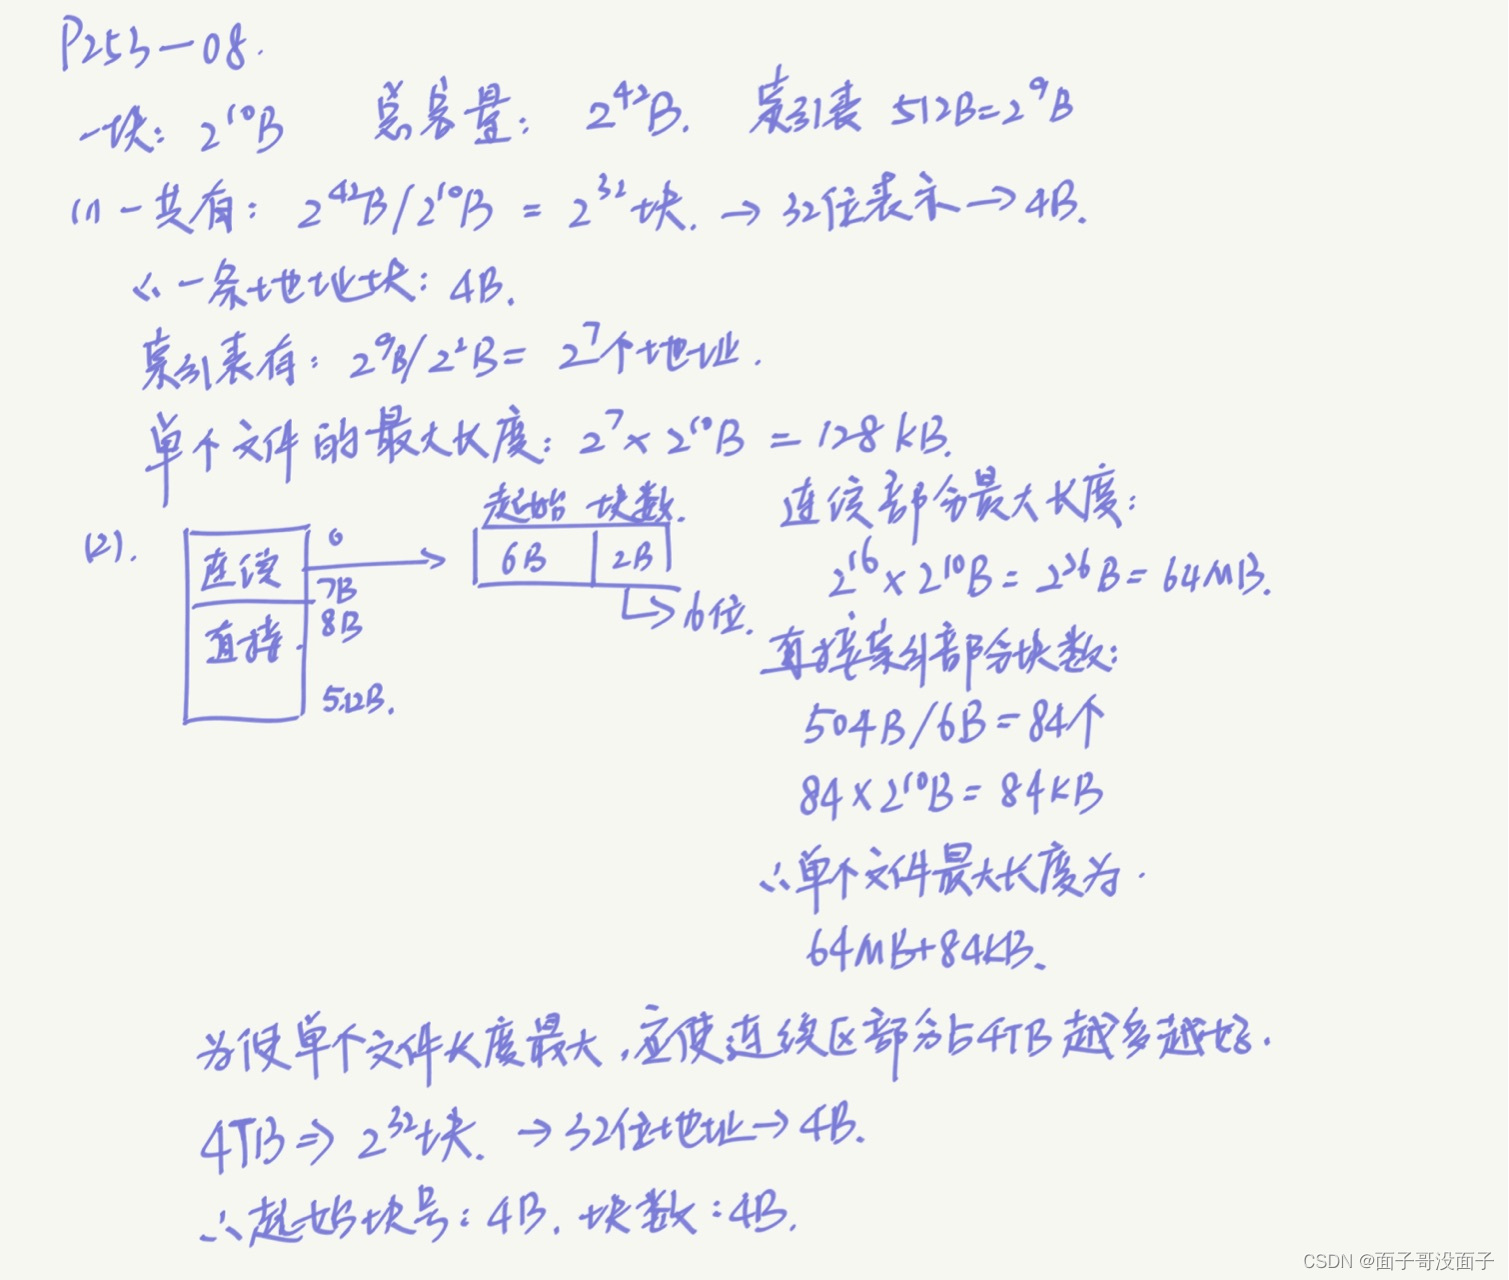 P253-08.
一块: 2^10B 总容量: 2^42B. 索引表 512B=2^9B
(1) 一共有: 2^42B/2^10B = 2^32块. → 32位表示 → 4B.
∴ 一条地址块: 4B.
索引表有: 2^9B/2^2B = 2^7个地址.
单个文件的最大长度: 2^7 × 2^10B = 128KB.
(2).
连续
直接.
0
7B
8B
512B.
起始 块数.
6B 2B
16位.
连续部分最大长度:
2^16 × 2^10B = 2^26B = 64MB.
直接索引部分块数:
504B/6B = 84个
84 × 2^10B = 84KB
∴单个文件最大长度为.
64MB+84KB.
为使单个文件长度最大,应使连续区部分占4TB越多越好.
4TB ⇒ 2^32块. → 32位地址 → 4B.
∴起始块号: 4B. 块数: 4B.
CSDN @面子哥没面子